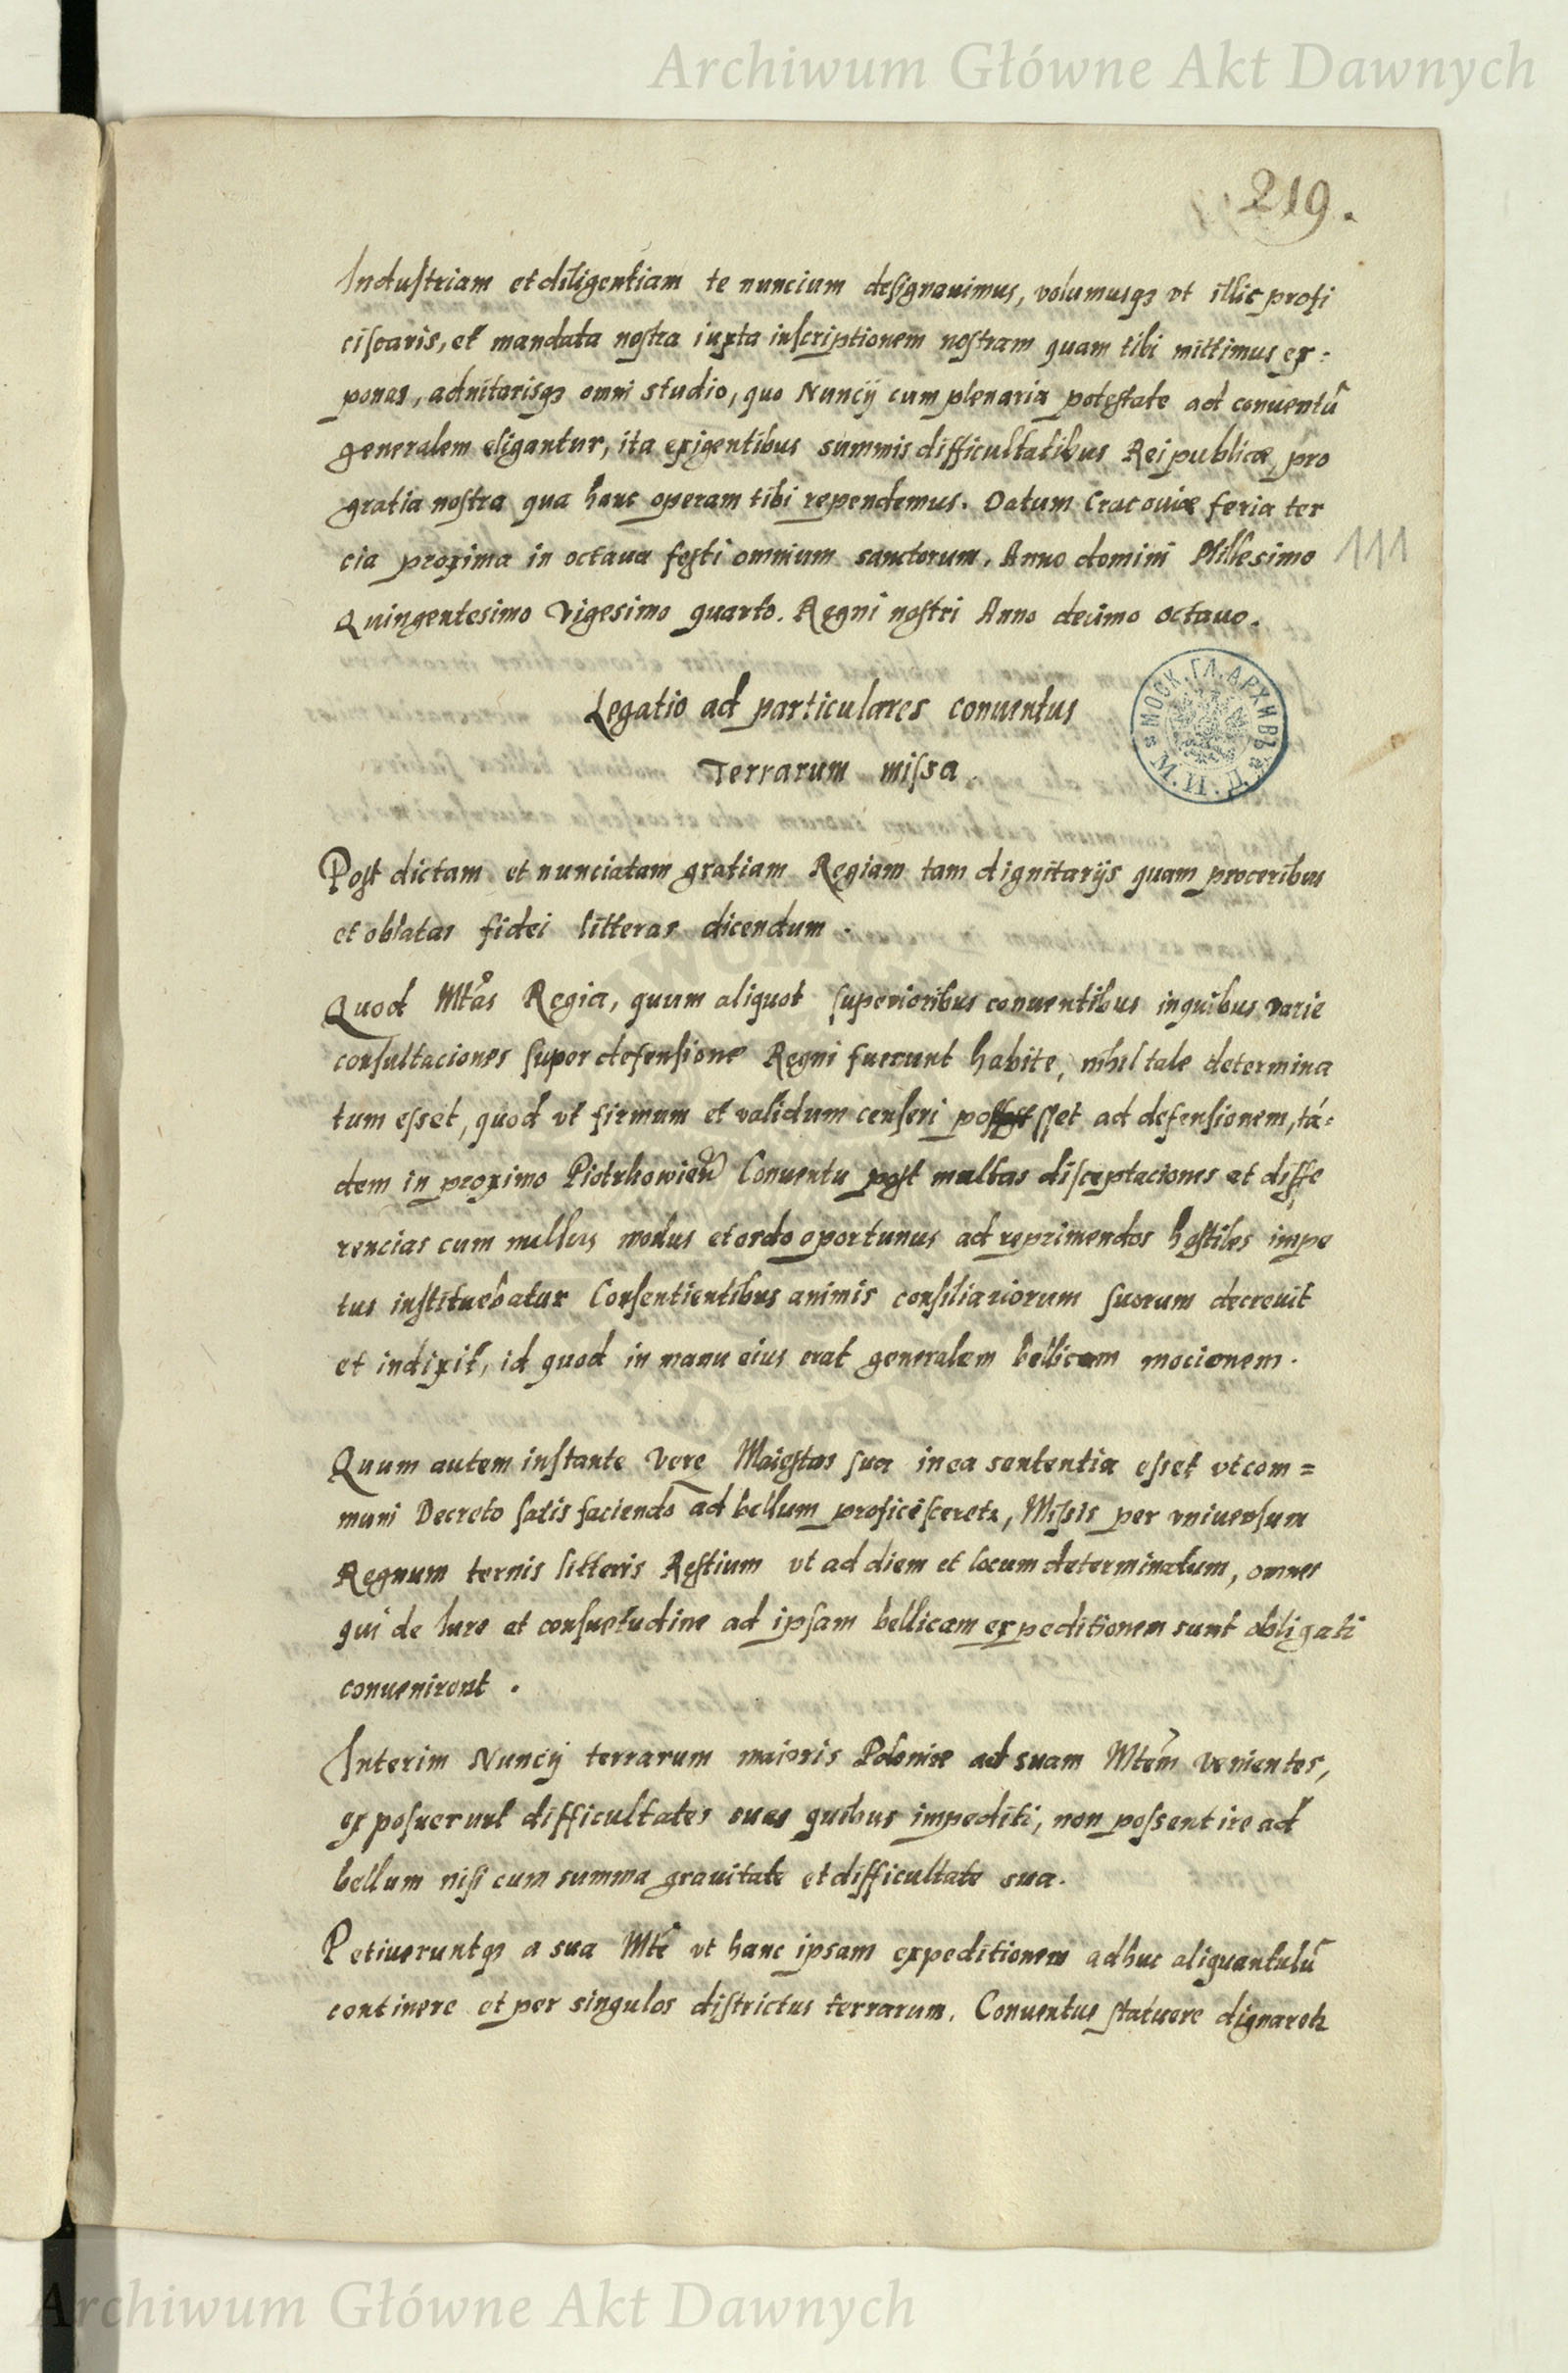 Archiwum Główne Akt Dawnych
219.
Industriam et diligentiam te nuncium designauimus, volumusqȝ vt illic profi
ciscaris, et mandata nostra iuxta inscriptionem nostram quam tibi mittimus ex=
ponas, adnitarisqȝ omni studio, quo Nuncij cum plenaria potestate ad conuentū
generalem eligantur, ita exigentibus summis difficultatibus Reipublicæ, pro
gratia nostra qua hanc operam tibi rependemus. Datum Cracouiæ feria ter
cia proxima in octaua festi omnium sanctorum. Anno domini Millesimo
111
Quingentesimo Vigesimo quarto. Regni nostri Anno decimo octauo.
Legatio ad particulares conuentus
Terrarum missa.
МОСК. ГЛ. АРХИВЪ М. И. Д.
Post dictam et nunciatam gratiam Regiam tam dignitarijs quam proceribus
et oblatas fidei litteras dicendum.
Quod Mtas Regia, quum aliquot superioribus conuentibus in quibus varie
consultaciones super defensione Regni fuerunt habite, nihil tale determina
tum esset, quod vt firmum et validum censeri posset ad defensionem, tā=
dem in proximo Conuentu post multas disceptaciones et diffe
rencias cum nullus modus et ordo oportunus ad reprimendos hostiles impe
tus instituebatur Consentientibus animis consiliariorum suorum decreuit
et indixit, id quod in manu eius erat generalem bellicam mocionem.
Quum autem instante Vere Maiestas sua in ea sententia esset vt com=
muni Decreto satis faciendo ad bellum proficisceretr, Missis per vniuersum
Regnum ternis litteris Restium vt ad diem et locum determinatum, omnes
qui de Iure et consuetudine ad ipsam bellicam expeditionem sunt obligati
conuenirent.
Interim Nuncij terrarum maioris Poloniæ ad suam Mtem venientes,
exposuerunt difficultates suas quibus impediti, non possent ire ad
bellum nisi cum summa grauitate et difficultate sua.
Petiueruntqȝ a sua Mte vt hanc ipsam expeditionem adhuc aliquantulū
continere et per singulos districtus terrarum. Conuentus statuere dignaretr
Archiwum Główne Akt Dawnych